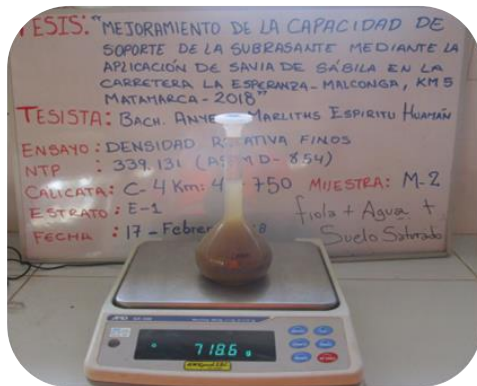 TESIS: "MEJORAMIENTO DE LA CAPACIDAD DE
SOPORTE DE LA SUBRASANTE MEDIANTE LA
APLICACIÓN DE SAVIA DE SÁBILA EN LA
CARRETERA LA ESPERANZA - MALCONGA, KM 5
MATAMARCA - 2018"
TESISTA: BACH. MARLITHS ESPIRITU HUAMÁN
ENSAYO: DENSIDAD FINOS
NTP : 339.131 (ASTM D - 854)
CALICATA: C-4 Km: 4 750 MUESTRA: M-2
ESTRATO: E-1 fiola + Agua +
FECHA : 17 - Febrer 8 Suelo Saturado
AND
718.6 g